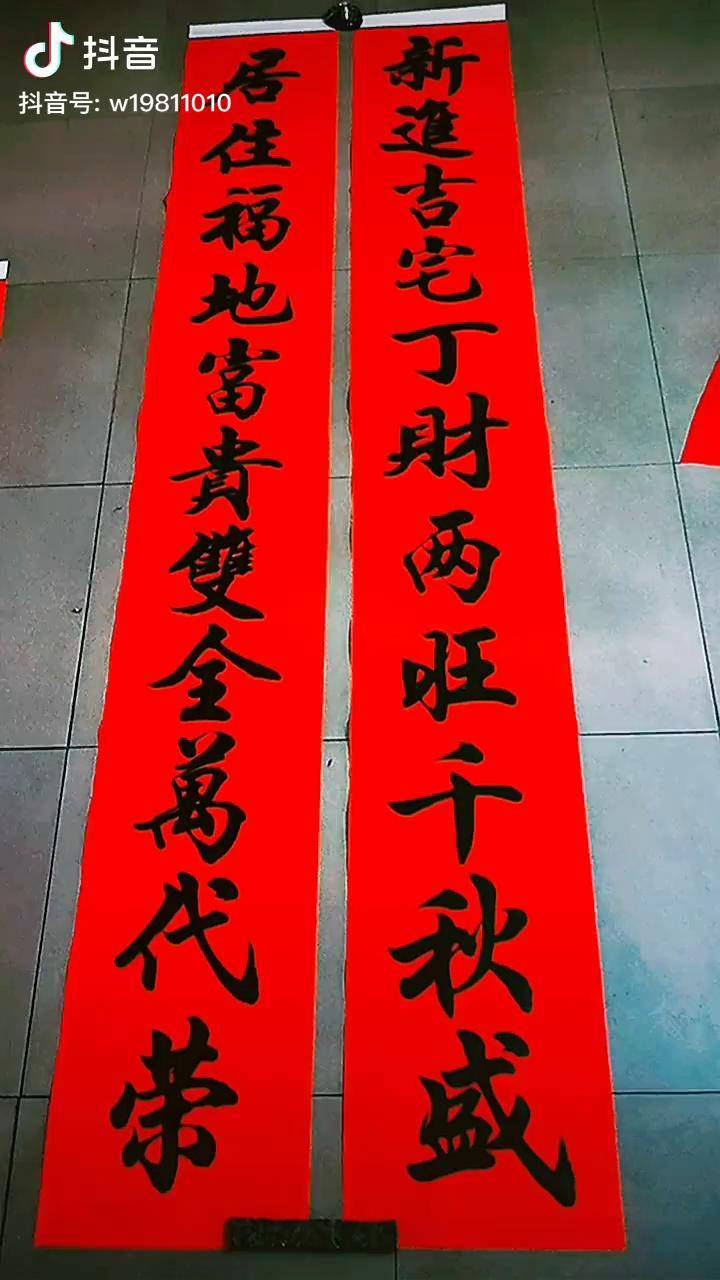 抖音
抖音号: w19811010
新進吉宅丁財两旺千秋盛
居住福地富貴雙全萬代荣